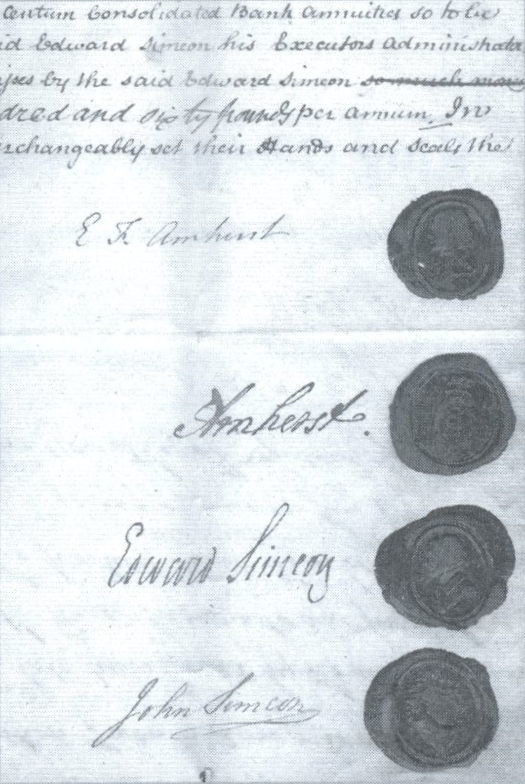 Centum Consolidated Bank Annuities so to be
id Edward Simeon his Executors Administrato
by the said Edward Simeon so much mon
dred and sixty pounds per annum. In
rchangeably set their Hands and Seals the
E F Amherst
Amherst.
Edward Simeon
John Simeon